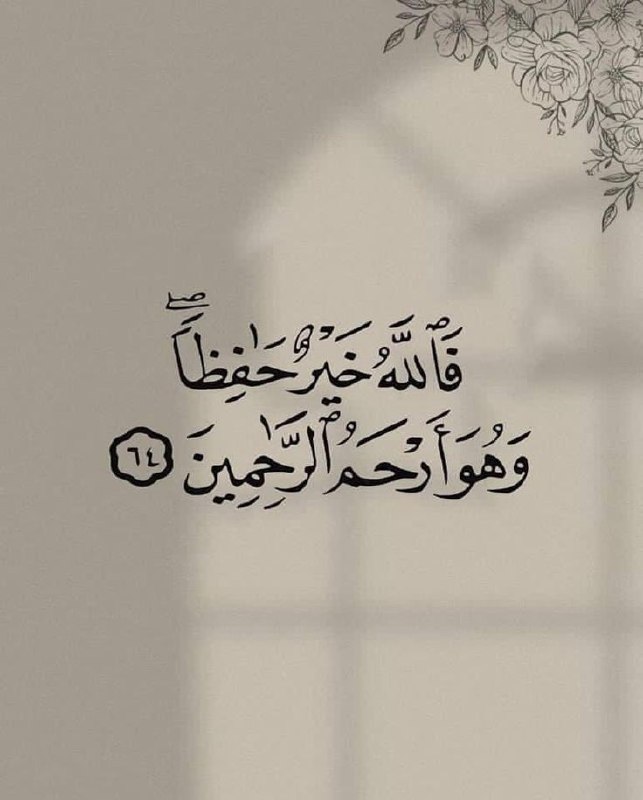 فَٱللَّهُ خَيْرٌ حَـٰفِظًۭا ۖ
وَهُوَ أَرْحَمُ ٱلرَّٰحِمِينَ ٦٤